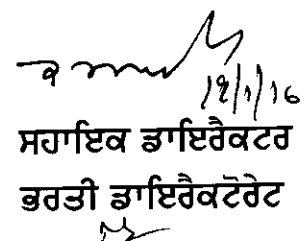 12/1/16
ਸਹਾਇਕ ਡਾਇਰੈਕਟਰ
ਭਰਤੀ ਡਾਇਰੈਕਟੋਰੇਟ